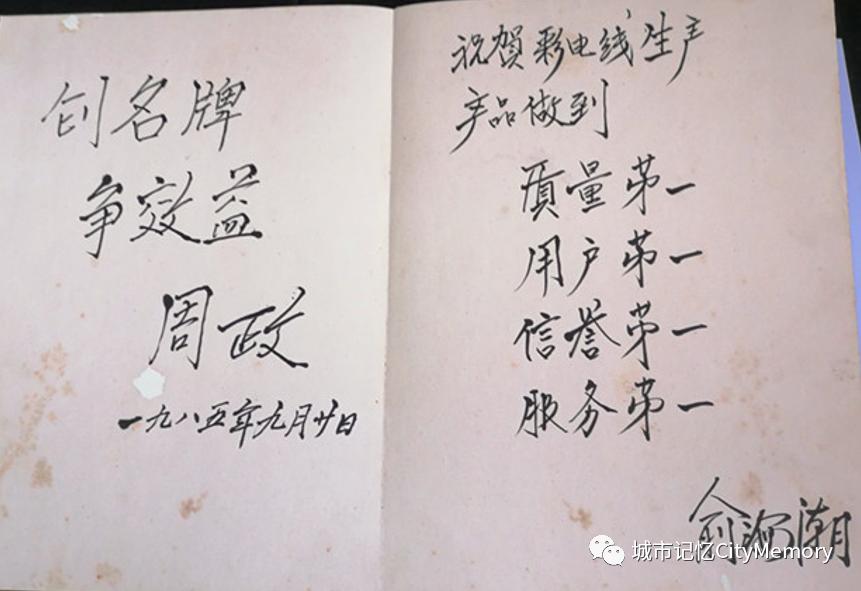 创名牌
争效益
周政
一九八五年九月廿日
祝贺彩电线生产
产品做到
质量第一
用户第一
信誉第一
服务第一
城市记忆CityMemory